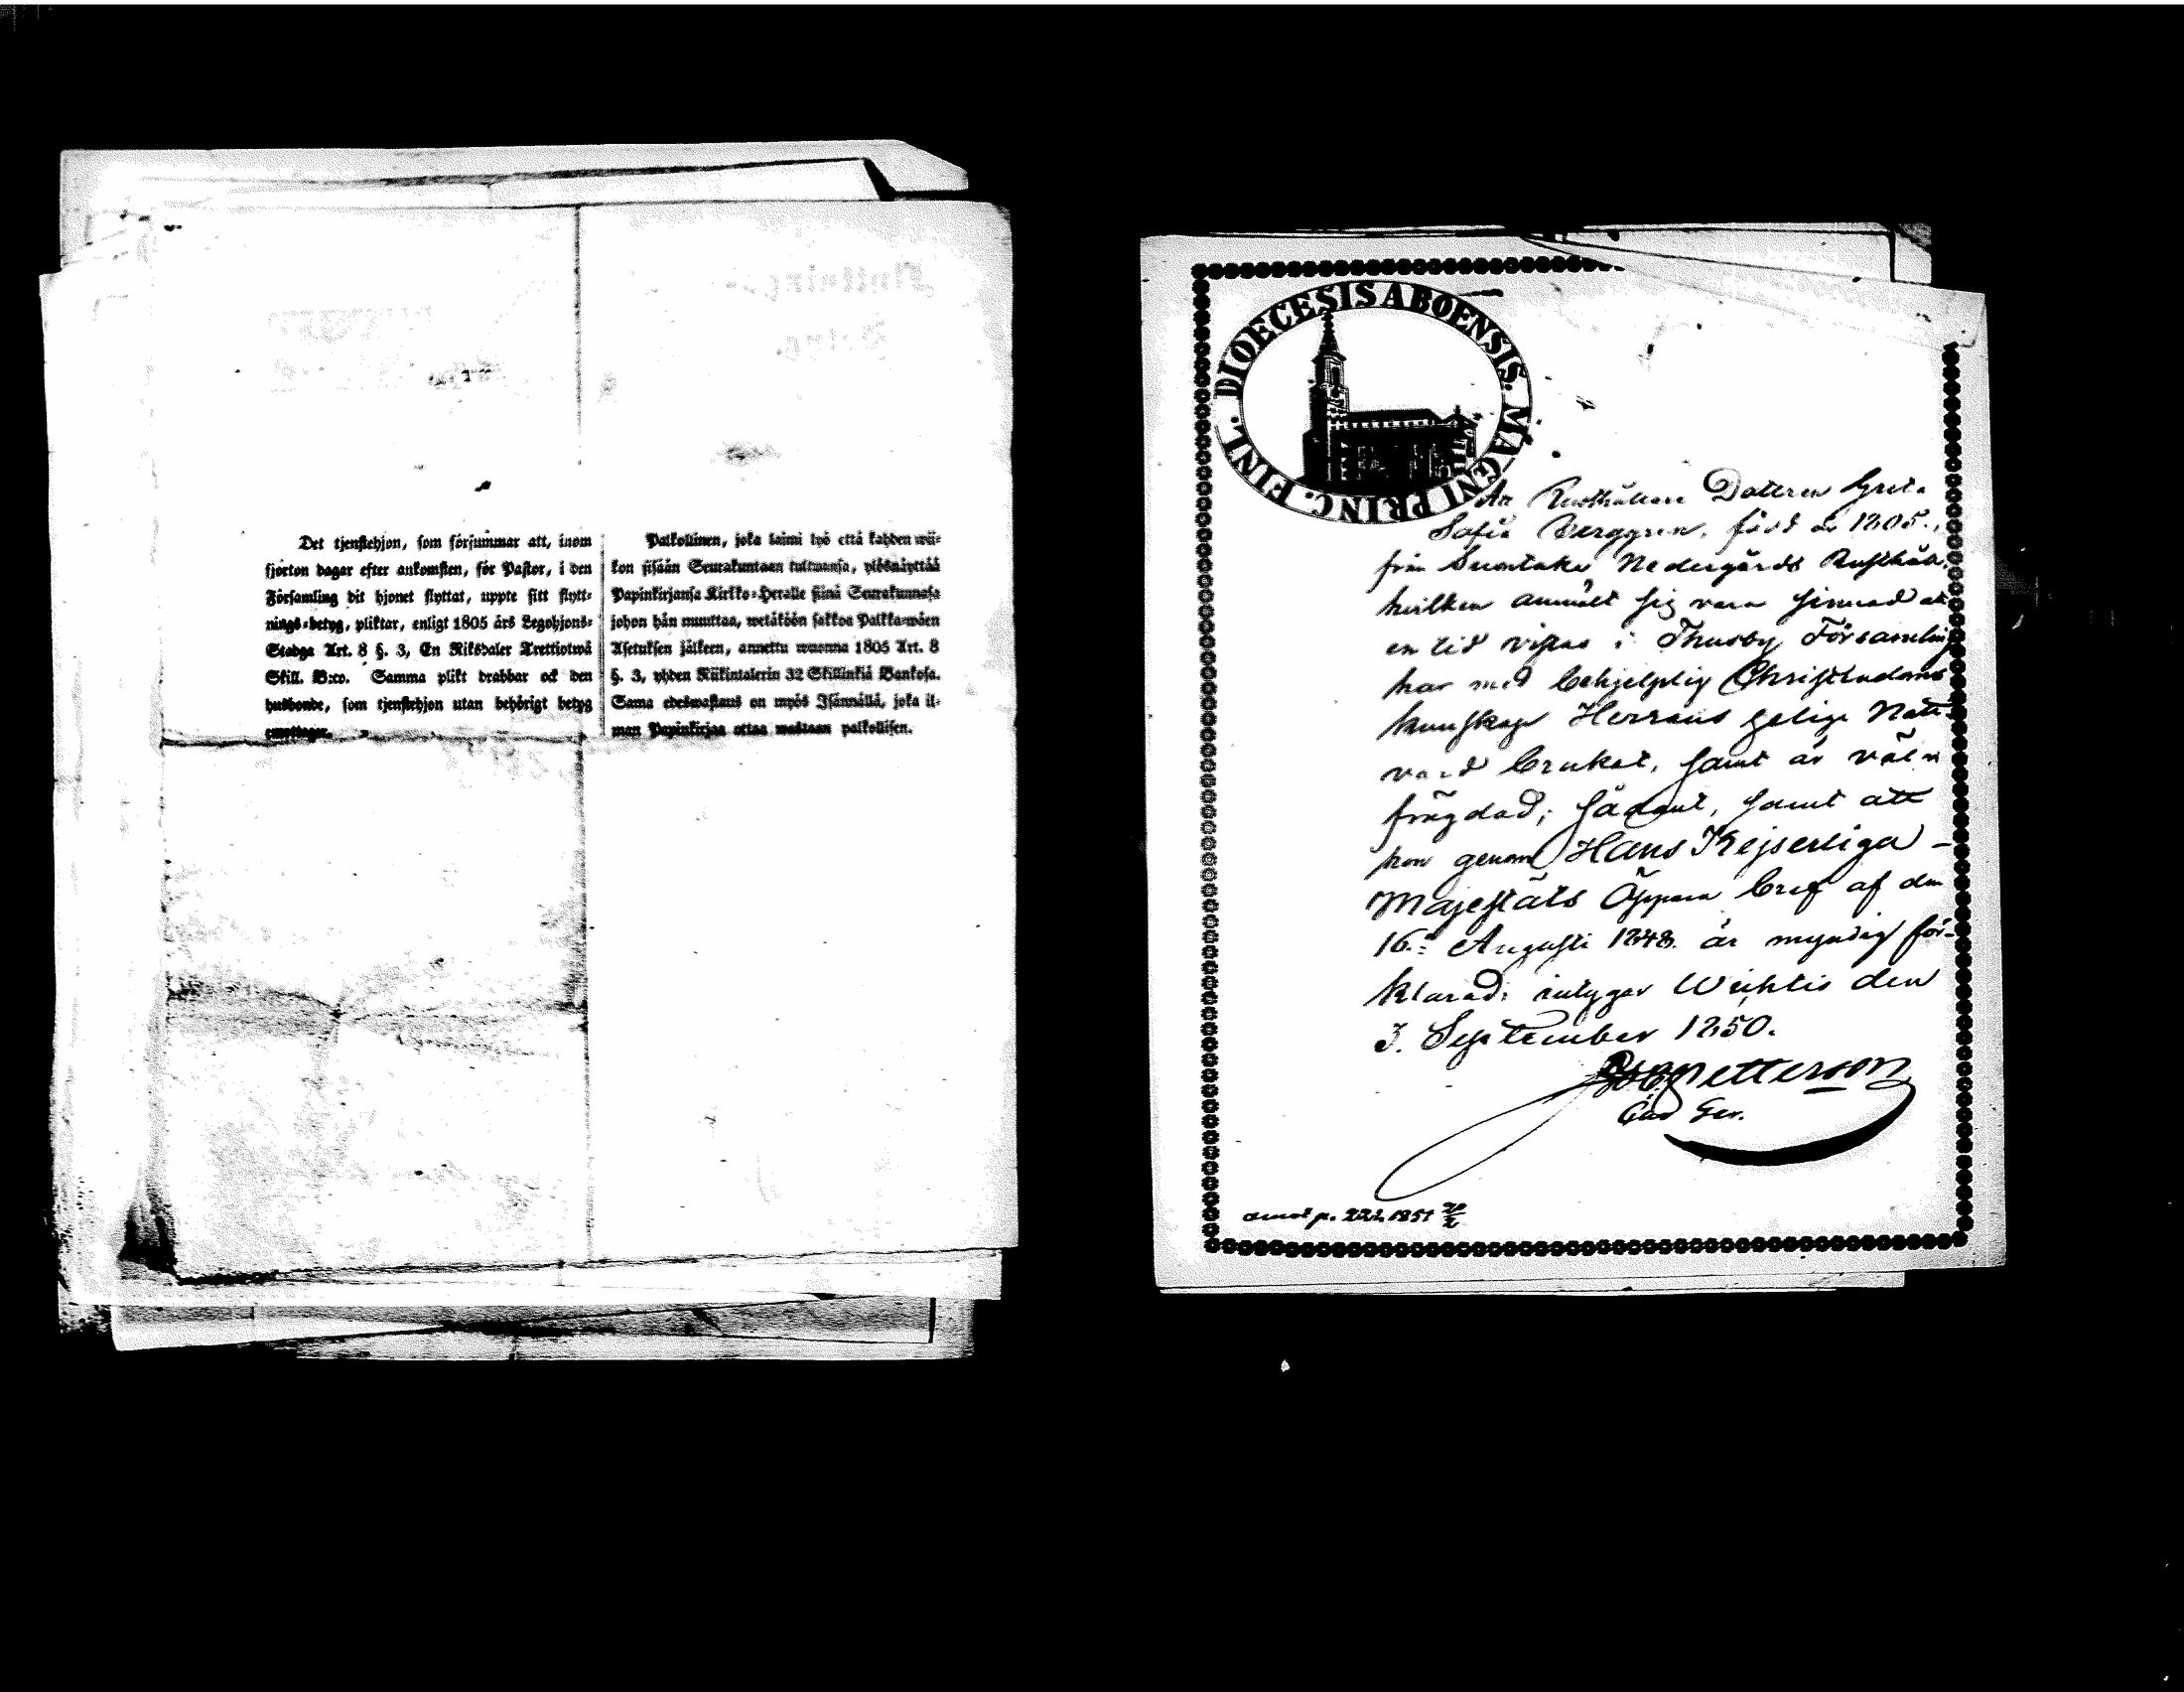 Det tjenstehjon, som försummar att, inom
fjorton dagar efter ankomsten, för Pastor, i den
Församling dit hjonet flyttat, uppte sitt flytt-
nings-betyg, pliktar, enligt 1805 års Legohjons-
Stadga Art. 8 §. 3, En Riksdaler Trettiotwå
Skill. B:co. Samma plikt drabbar ock den
husbonde, som tjenstehjon utan behörigt betyg
emottager.
Palkollinen, joka laimi lyö että kahden wii-
kon sisään Seurakuntaan tultuansa, ylösnäyttää
Papinkirjansa Kirkko-Herralle siinä Seurakunnasa
johon hän muuttaa, wetäköön sakkoa Palkka-wäen
Asetuksen jälkeen, annettu wuonna 1805 Art. 8
§. 3, yhden Riikintalerin 32 Skillinkiä Bankosa.
Sama edeswastaus on myös Isännällä, joka il-
man Papinkirjaa ottaa wastaan palkollisen.
DIOECESIS ABOENSIS. MAGNI PRINC. FINL.
Att Rusthållare Dottren Greta
Sofia Berggren, född år 1805.,
från Suontaka Nedergårds Rusthåll,
hvilken anmält sig vara sinnad att
en tid vistas i Thusby Församling
har med behjelplig Christendoms
kunskap Herrans helige Natt-
vard brukat, samt är väl
frägdad; sådant, samt att
hon genom Hans Kejserliga
Majestäts Öppna bref af den
16. Augusti 1848. är myndig för-
klarad, intygar Wichtis den
3. September 1850.
Petterson
p. 222. 1851